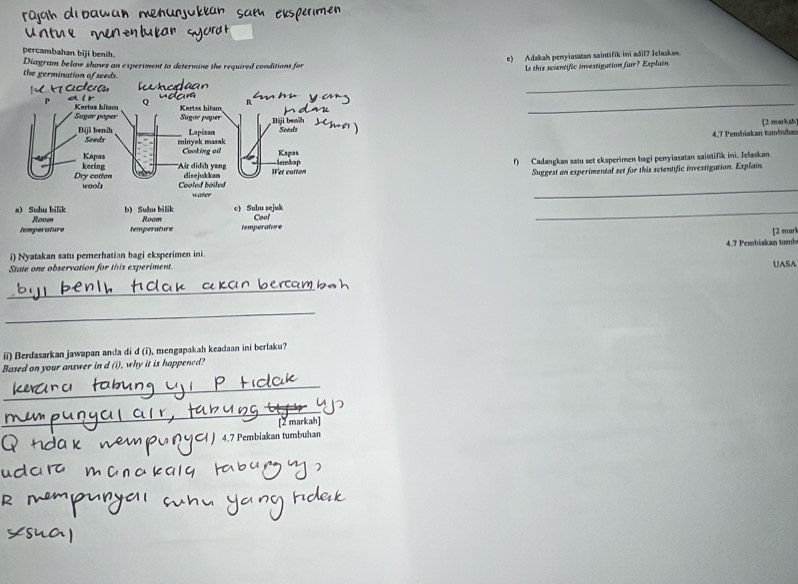 rajah dibawah menunjukkan satu eksperimen
untuk menentukan syarat
percambahan biji benih.
Diagram below shows an experiment to determine the required conditions for
the germination of seeds.
air
udara
suhu yang
P
Q
R
tidak
Kertas hitam
Sugar paper
Kertas hitam
Sugar paper
Biji benih
Seeds
Biji benih
Seeds
Lapisan
minyak masak
Cooking oil
Kapas
kering
Dry cotton
wools
Air didih yang
disejukkan
Cooled boiled
water
Kapas
lembap
Wet cotton
a) Suhu bilik
Room
temperature
b) Suhu bilik
Room
temperature
c) Suhu sejuk
Cool
temperature
i) Nyatakan satu pemerhatian bagi eksperimen ini.
State one observation for this experiment.
biji benih tidak akan bercambah
ii) Berdasarkan jawapan anda di d (i), mengapakah keadaan ini berlaku?
Based on your answer in d (i), why it is happened?
kerana tabung uji P tidak
mempunyai air, tabung uji
[2 markah]
Q tidak mempunyai
4.7 Pembiakan tumbuhan
udara manakala tabung uji
R mempunyai suhu yang tidak
sesuai
e) Adakah penyiasatan saintifik ini adil? Jelaskan.
Is this scientific investigation fair? Explain.
[2 markah]
4.7 Pembiakan tumbuhan
f) Cadangkan satu set eksperimen bagi penyiasatan saintifik ini. Jelaskan.
Suggest an experimental set for this scientific investigation. Explain.
[2 mark
4.7 Pembiakan tumb
UASA